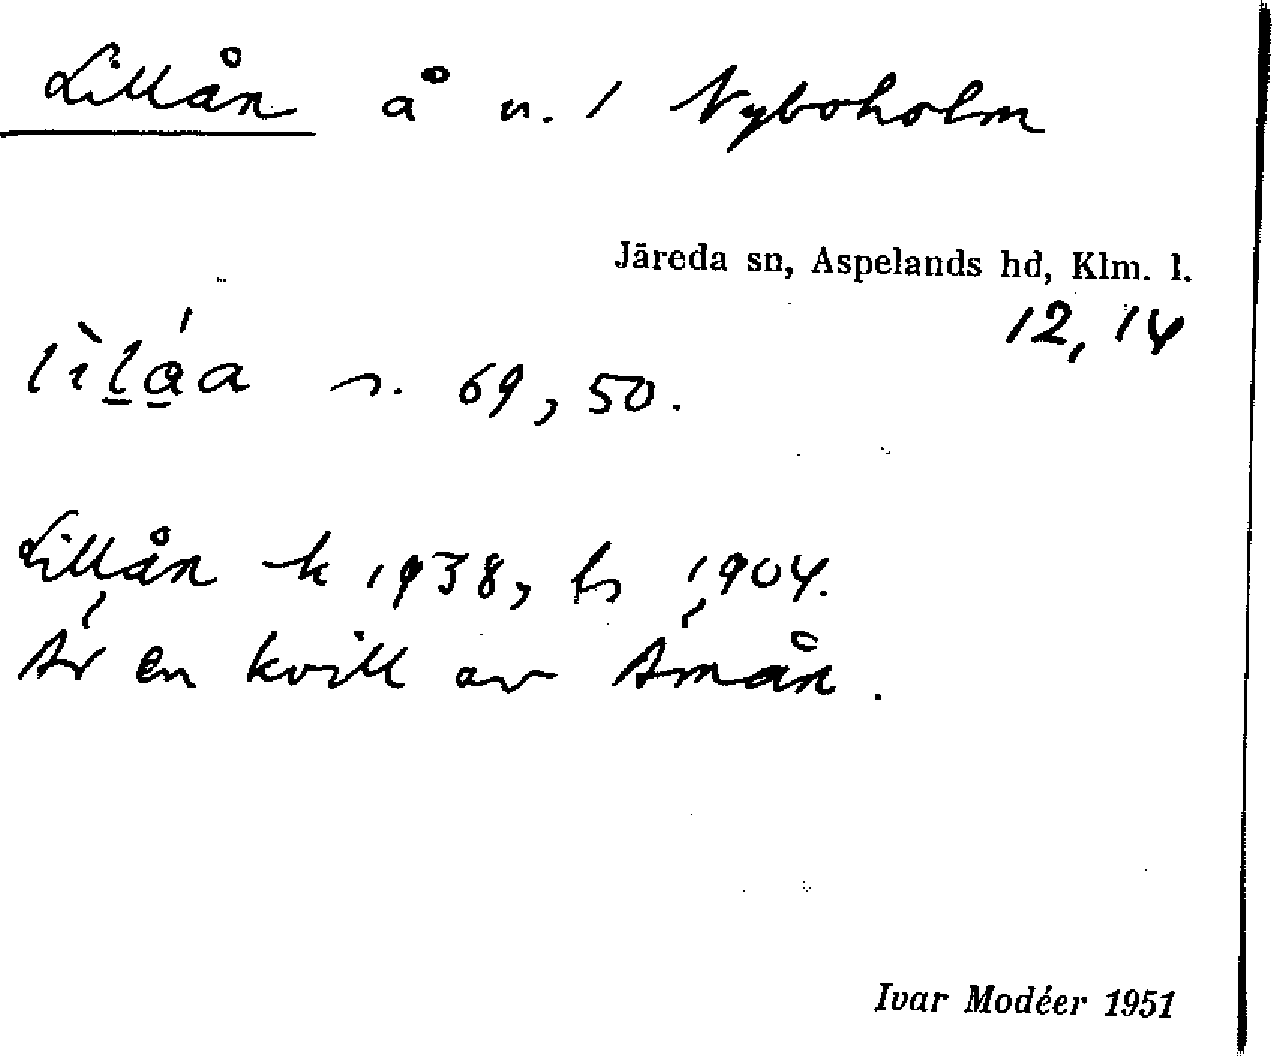 Lillån å n. / Nyboholm
Järeda sn, Aspelands hd, Klm. l.
12, 14
s. 69, 50.
Lillån k 1938, 1904.
Är en kvill av Åmån.
Ivar Modéer 1951